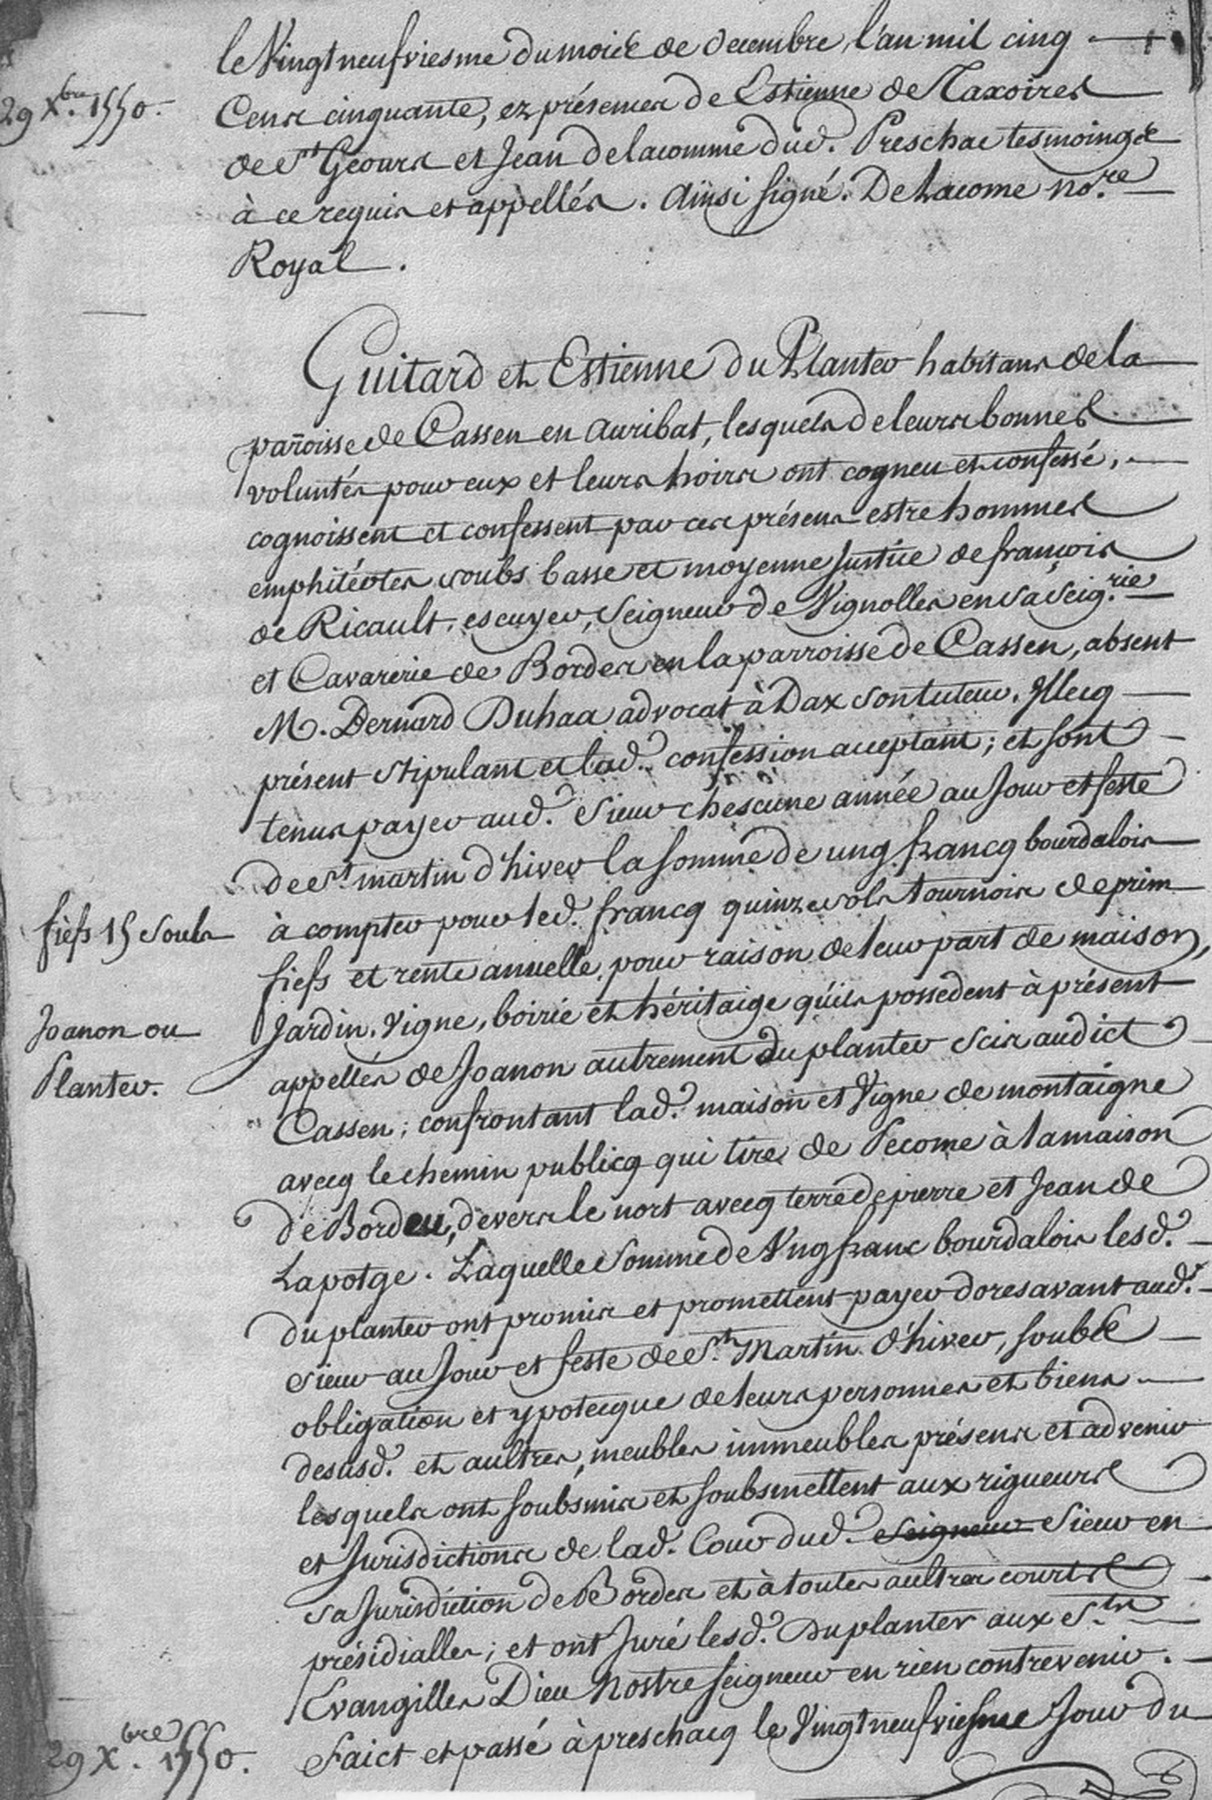 le Vingt neufviesme du mois de decembre, l'an mil cinq
29 Xbre. 1550.
Cens cinquante, ez présences de Estienne de Taxoires
de St Geours et Jean de lacomme dud. Preschac tesmoings
à ce requis et appellés. Ainsi signé. De Lacome nore.
Royal.
Guitard et Estienne du Planter habitans de la
parroisse de Cassen en auribat, lesquels de leurs bonnes
voluntés pour eux et leurs hoirs ont cogneu et confessé,
cognoissent et confessent par ces présens estre hommes
emphitéotes soubs basse et moyenne Justice de françois
de Ricault, escuyer, Seigneur de Vignolles en sa Seigrie.
et Cavarerie de Bordes en la parroisse de Cassen, absent
M. Bernard Duhaa advocat à Dax son tuteur, Illecq
présent stipulant et lad. confession acceptant; et sont
tenus payer aud. Sieur chescune année au Jour et feste
de St. martin d'hiver la somme de ung francq bourdalois
fiefs 15 souls
à compter pour led. francq quinze sols tournois de prim
fiefs et rente annuelle, pour raison de leur part de maison,
Joanon ou
Planter.
Jardin, Vigne, boirie et héritaige qu'ils possedent à présent
appellés de Joanon autrement du planter scis audict
Cassen; confrontant lad. maison et Vigne de montaigne
avecq le chemin publicq qui tire de Pecome à la maison
de Bordeu, devers le nort avecq terre de pierre et Jean de
Lapotge. Laquelle somme de Ung franc bourdalois lesd.
du planter ont promis et promettent payer doresavant aud.
sieur au Jour et feste de St. Martin d'hiver, soubs
obligation et ypotecque de leurs personnes et biens
desusd. et aultres, meubles immeubles présens et advenir
lesquels ont soubsmis et soubsmettent aux rigueurs
et Jurisdictions de lad. Cour dud. Seigneur Sieur en
sa Jurisdiction de Bordes et à toutes aultres courts
présidialles; et ont Juré lesd. Duplanter aux Sts
Evangilles Dieu Nostre seigneur en rien contrevenir.
29 Xbre. 1550.
Faict et passé à preschacq le Vingt neufviesme Jour du